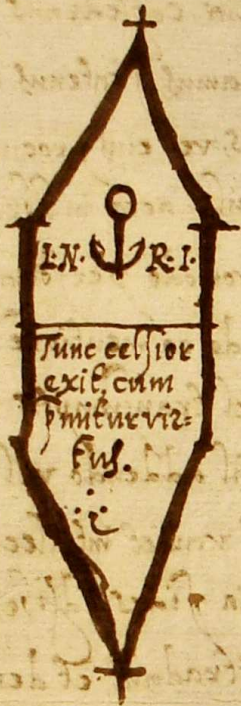 I·N· R·I·
Tunc celsior
exit, cum
p̄mitur vir=
tus.